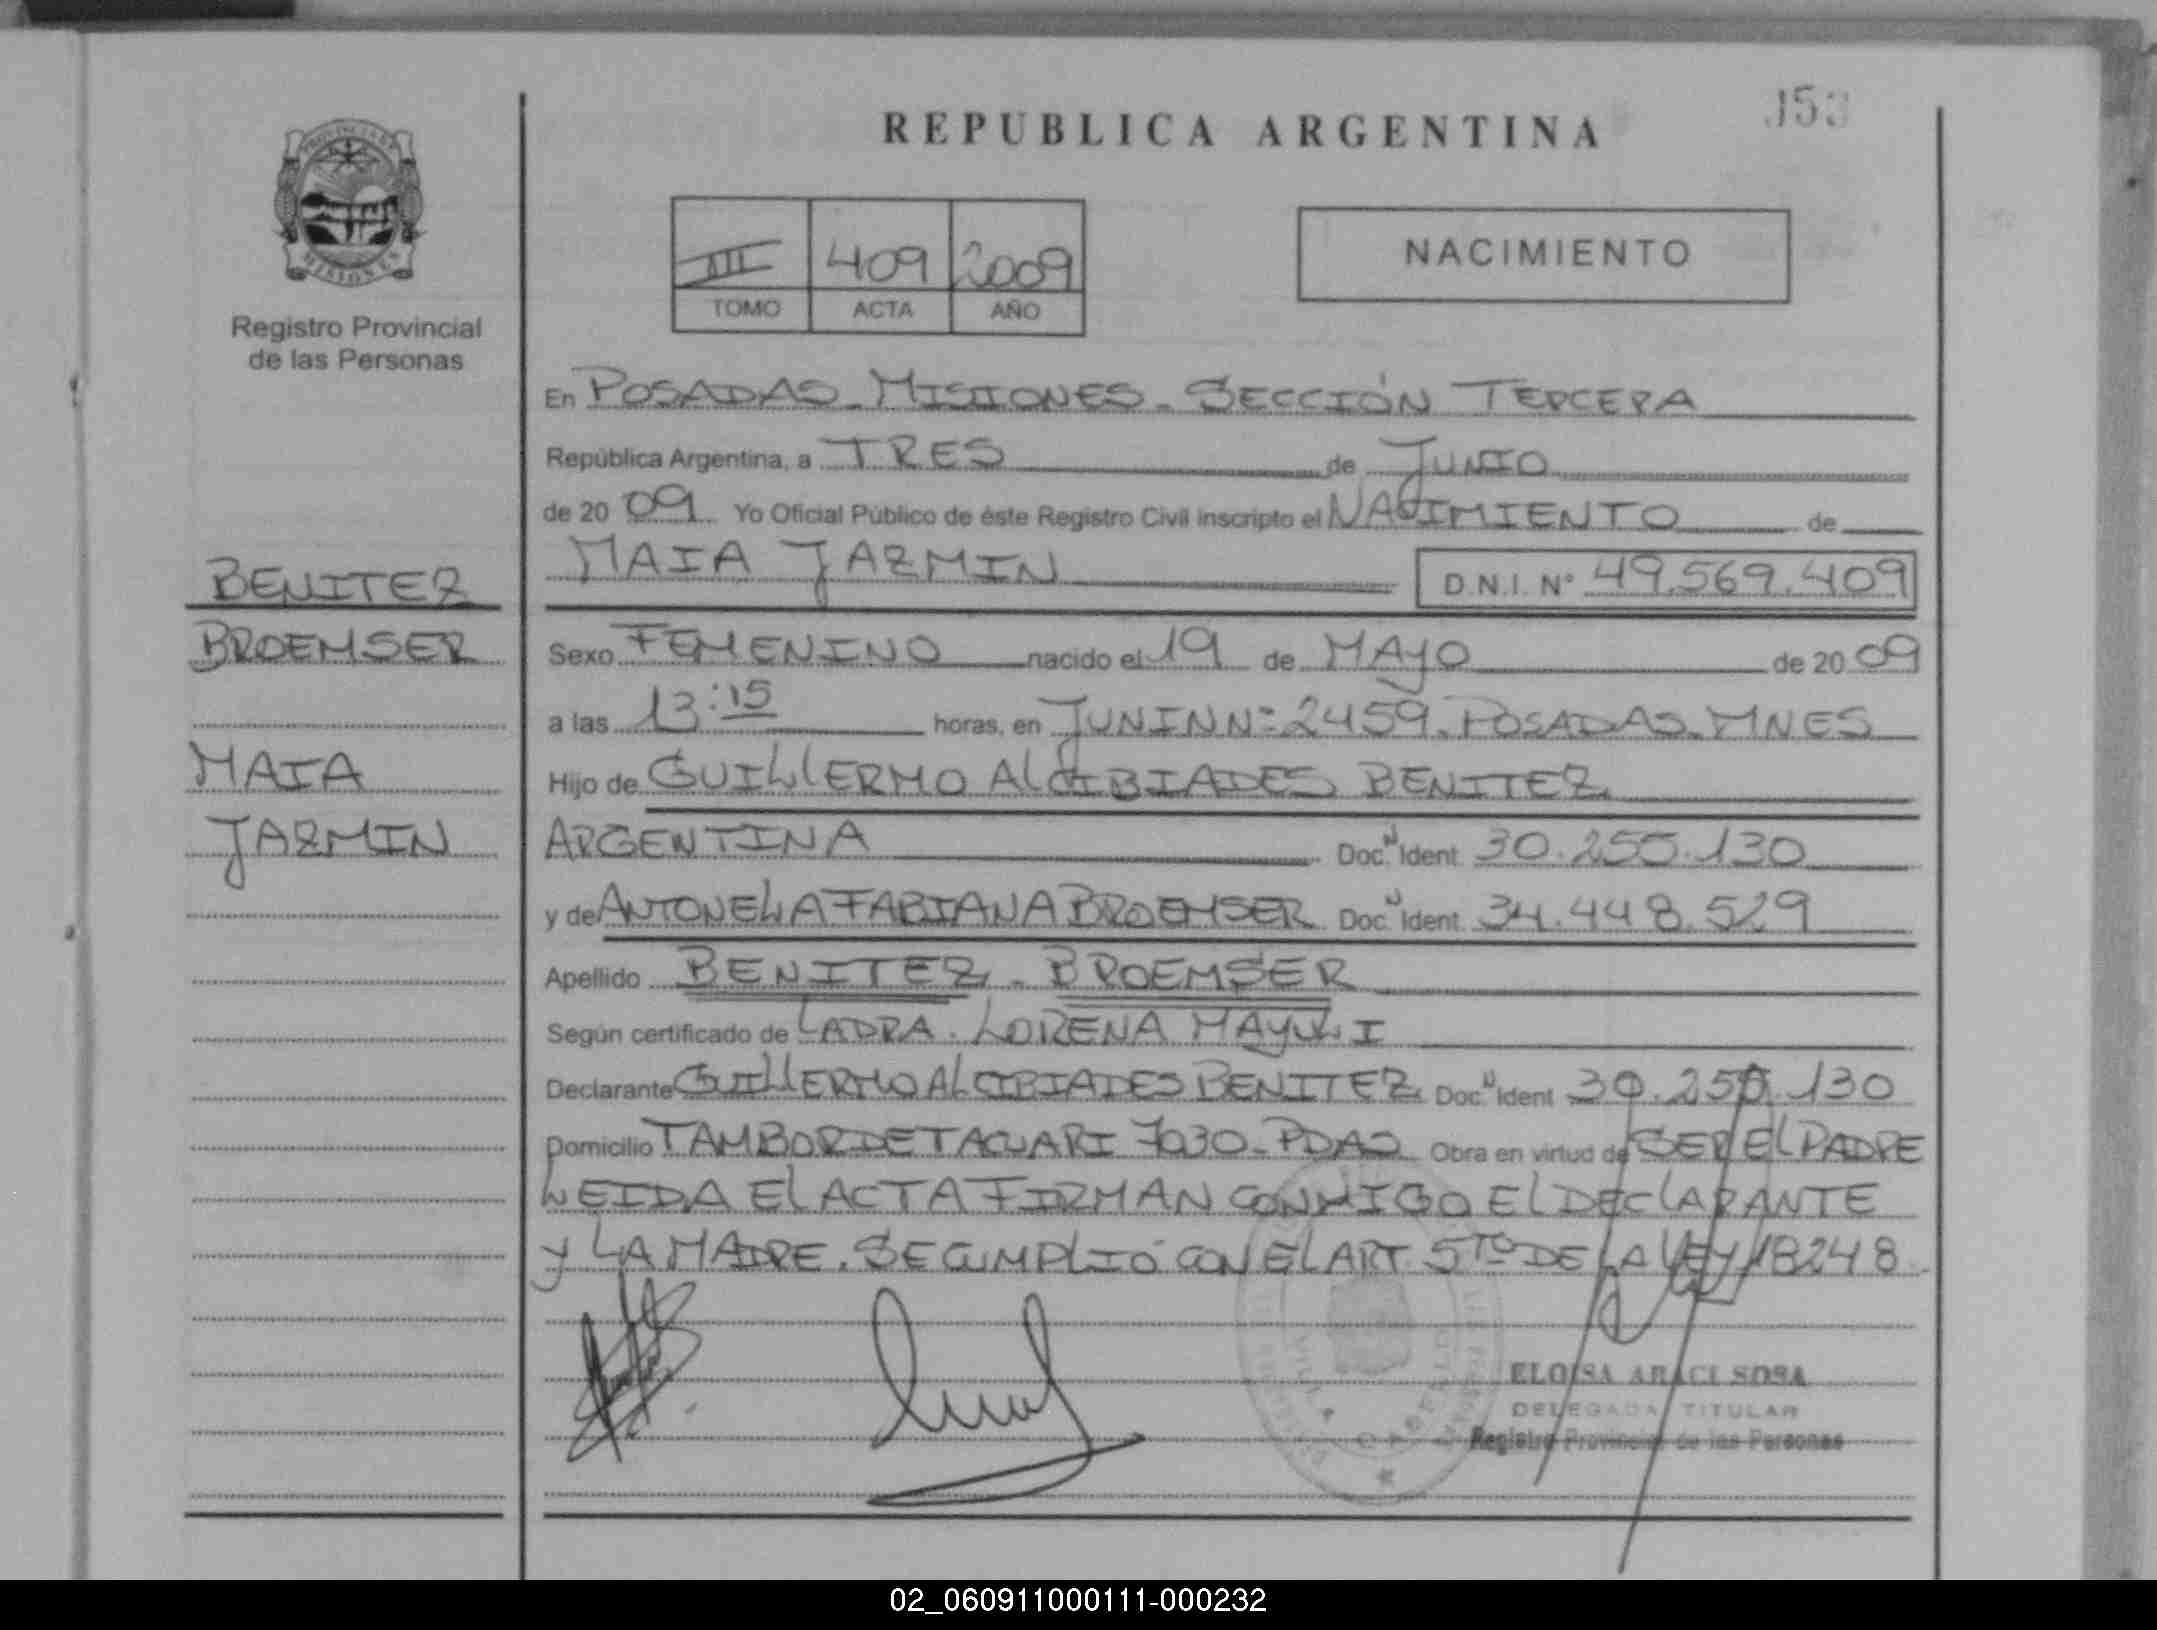 REPUBLICA ARGENTINA
PROVINCIA DE
MISIONES
Registro Provincial
de las Personas
III 409 2009
TOMO ACTA AÑO
NACIMIENTO
En POSADAS - MISIONES - SECCIÓN TERCERA
República Argentina, a TRES de JUNIO
de 2009 Yo Oficial Público de éste Registro Civil inscripto el NACIMIENTO de
MAIA JAZMIN D.N.I. N° 49.569.409
BENITEZ
BROEMSER
MAIA
JAZMIN
Sexo FEMENINO nacido el 19 de MAYO de 2009
a las 13:15 horas, en JUNIN Nº 2459. POSADAS - MNES
Hijo de GUILLERMO ALCIBIADES BENITEZ
ARGENTINA Doc. N Ident. 30.255.130
y de ANTONELLA FABIANA BROEMSER Doc. N Ident. 34.448.529
Apellido BENITEZ - BROEMSER
Según certificado de LA DRA. LORENA MAYULI
Declarante GUILLERMO ALCIBIADES BENITEZ Doc. N Ident 30.255.130
Domicilio TAMBOR DE TACUARI 7030 - PDAS Obra en virtud de SER EL PADRE
LEIDA EL ACTA FIRMAN CONMIGO EL DECLARANTE
Y LA MADRE. SE CUMPLIÓ CON EL ART. 5TO DE LA LEY 18248
ELOISA ARACI SOSA
DELEGADA TITULAR
Registro Provincial de las Personas
02_060911000111-000232